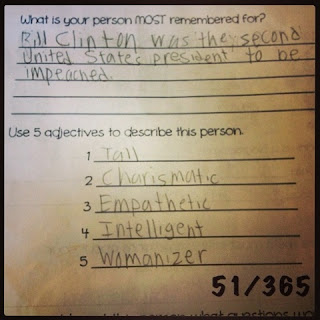 What is your person MOST remembered for?
Bill Clinton was the second
United States president to be
impeached.
Use 5 adjectives to describe this person.
1 Tall
2 Charismatic
3 Empathetic
4 Intelligent
5 Womanizer
51/365
person what questions wo